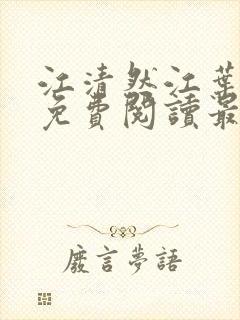 江清然江葉
免費閱讀最
廢言夢語